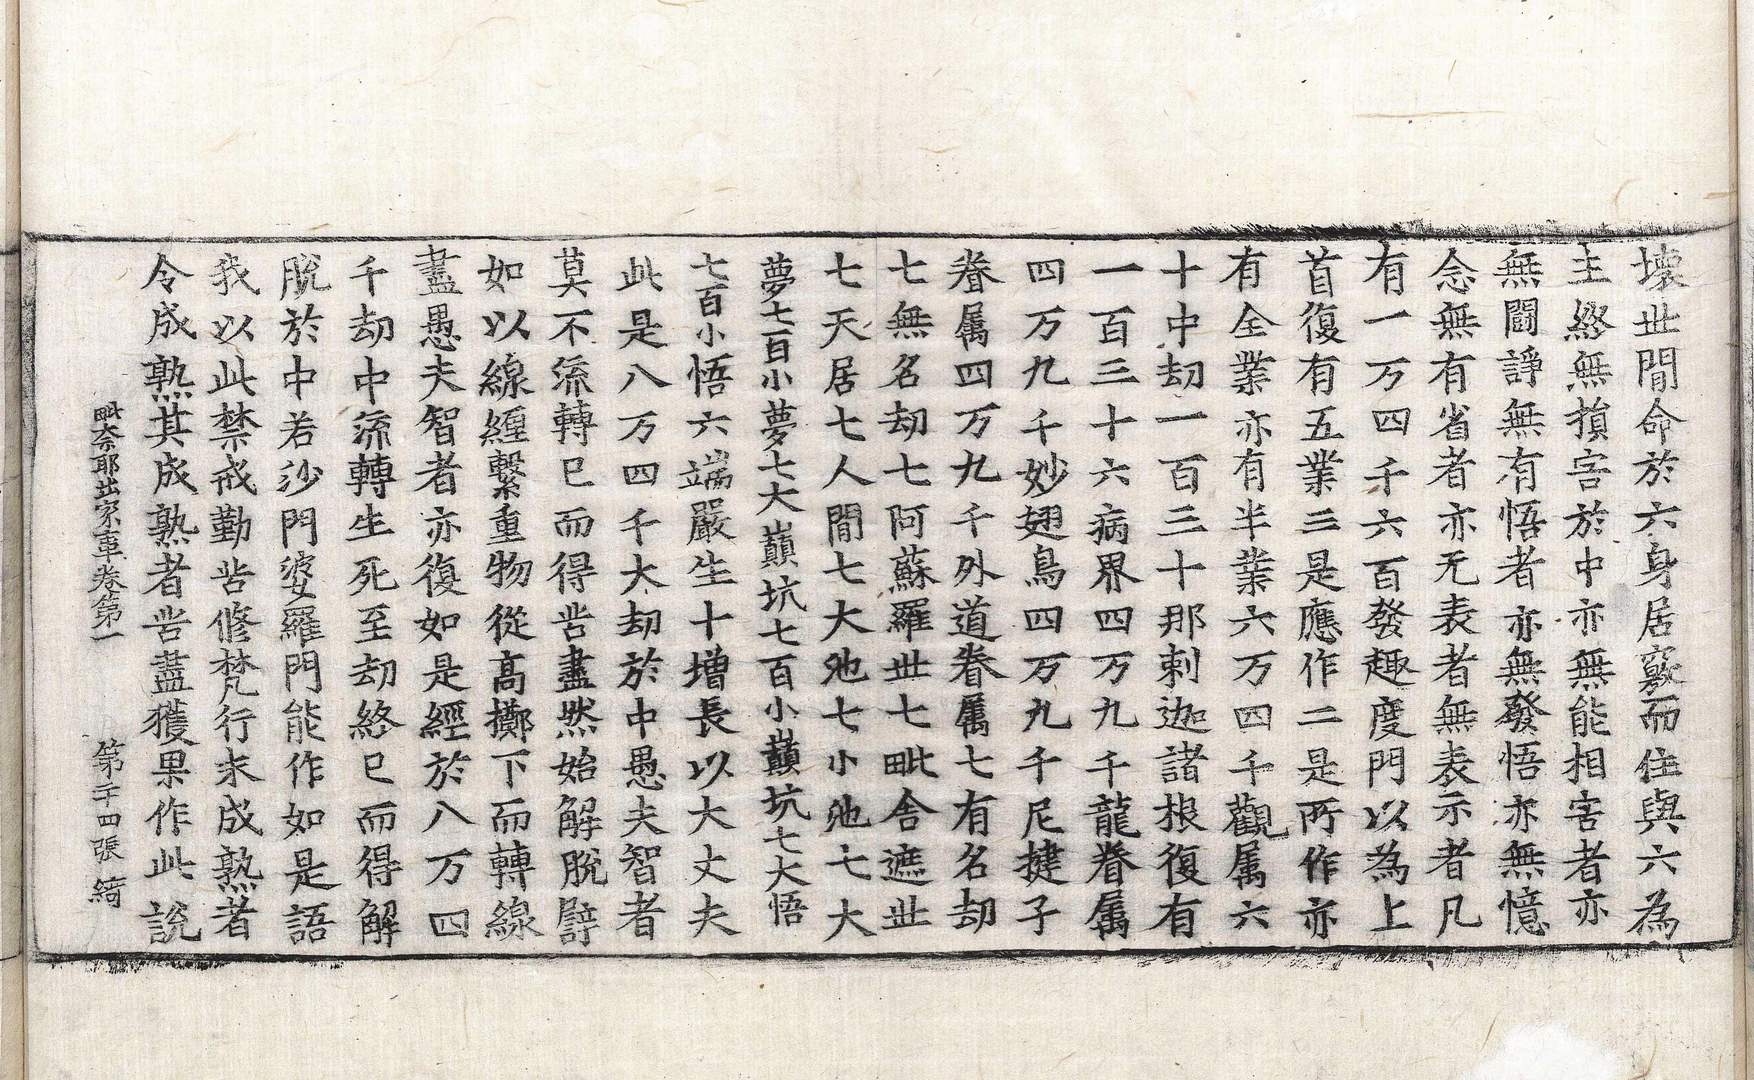 壞世間命於六身居竅而住與六為
主終無損害於中亦無能相害者亦
無鬪諍無有悟者亦無發悟亦無憶
念無有省者亦无表者無表示者凡
有一万四千六百發趣度門以為上
首復有五業三是應作二是所作亦
有全業亦有半業六万四千觀属六
十中劫一百三十那剌迦諸根復有
一百三十六病界四万九千龍眷属
四万九千妙翅鳥四万九千尼揵子
眷属四万九千外道眷属七有名劫
七無名劫七阿蘇羅世七毗舍遮世
七天居七人間七大池七小池七大
夢七百小夢七大巔坑七百小巔坑七大悟
七百小悟六端嚴生十増長以大丈夫
此是八万四千大劫於中愚夫智者
莫不流轉已而得皆盡然始解脫譬
如以線纏繫重物從高擲下而轉線
盡愚夫智者亦復如是經於八万四
千劫中流轉生死至劫終已而得解
脫於中若沙門婆羅門能作如是語
我以此禁戒勤苦修梵行未成熟者
令成熟其成熟者皆盡獲果作此說
毗奈耶出家事卷第一 第二十四張 綺